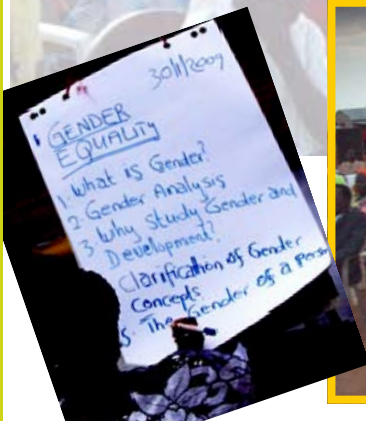 30/1/2009
GENDER
EQUALITY
1. What is Gender?
2. Gender Analysis
3. Why Study Gender and
Development?
Clarification of Gender
Concepts
5. The Gender of a Person